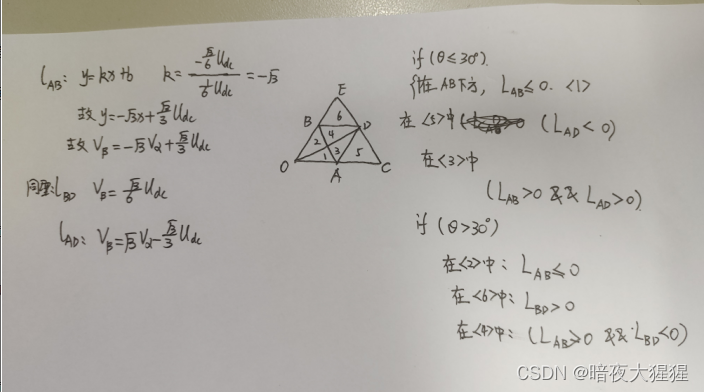 l_AB: y=kx+b k= (-√3/6 Udc)/(1/6 Udc) = -√3
故 y=-√3x+√3/3 Udc
故 Vβ=-√3Vα+√3/3 Udc
同理: l_BD Vβ=√3/6 Udc
l_AD: Vβ=√3Vα-√3/3 Udc
E
6
B
D
2
4
1
3
5
O
A
C
if (θ≤30°)
在AB下方, L_AB≤0. <1>
在<5>中 (L_AD<0)
在<3>中
(L_AB>0 && L_AD>0)
if (θ>30°)
在<2>中: L_AB≤0
在<6>中: L_BD>0
在<4>中: (L_AB>0 && L_BD<0)
CSDN @暗夜大猩猩